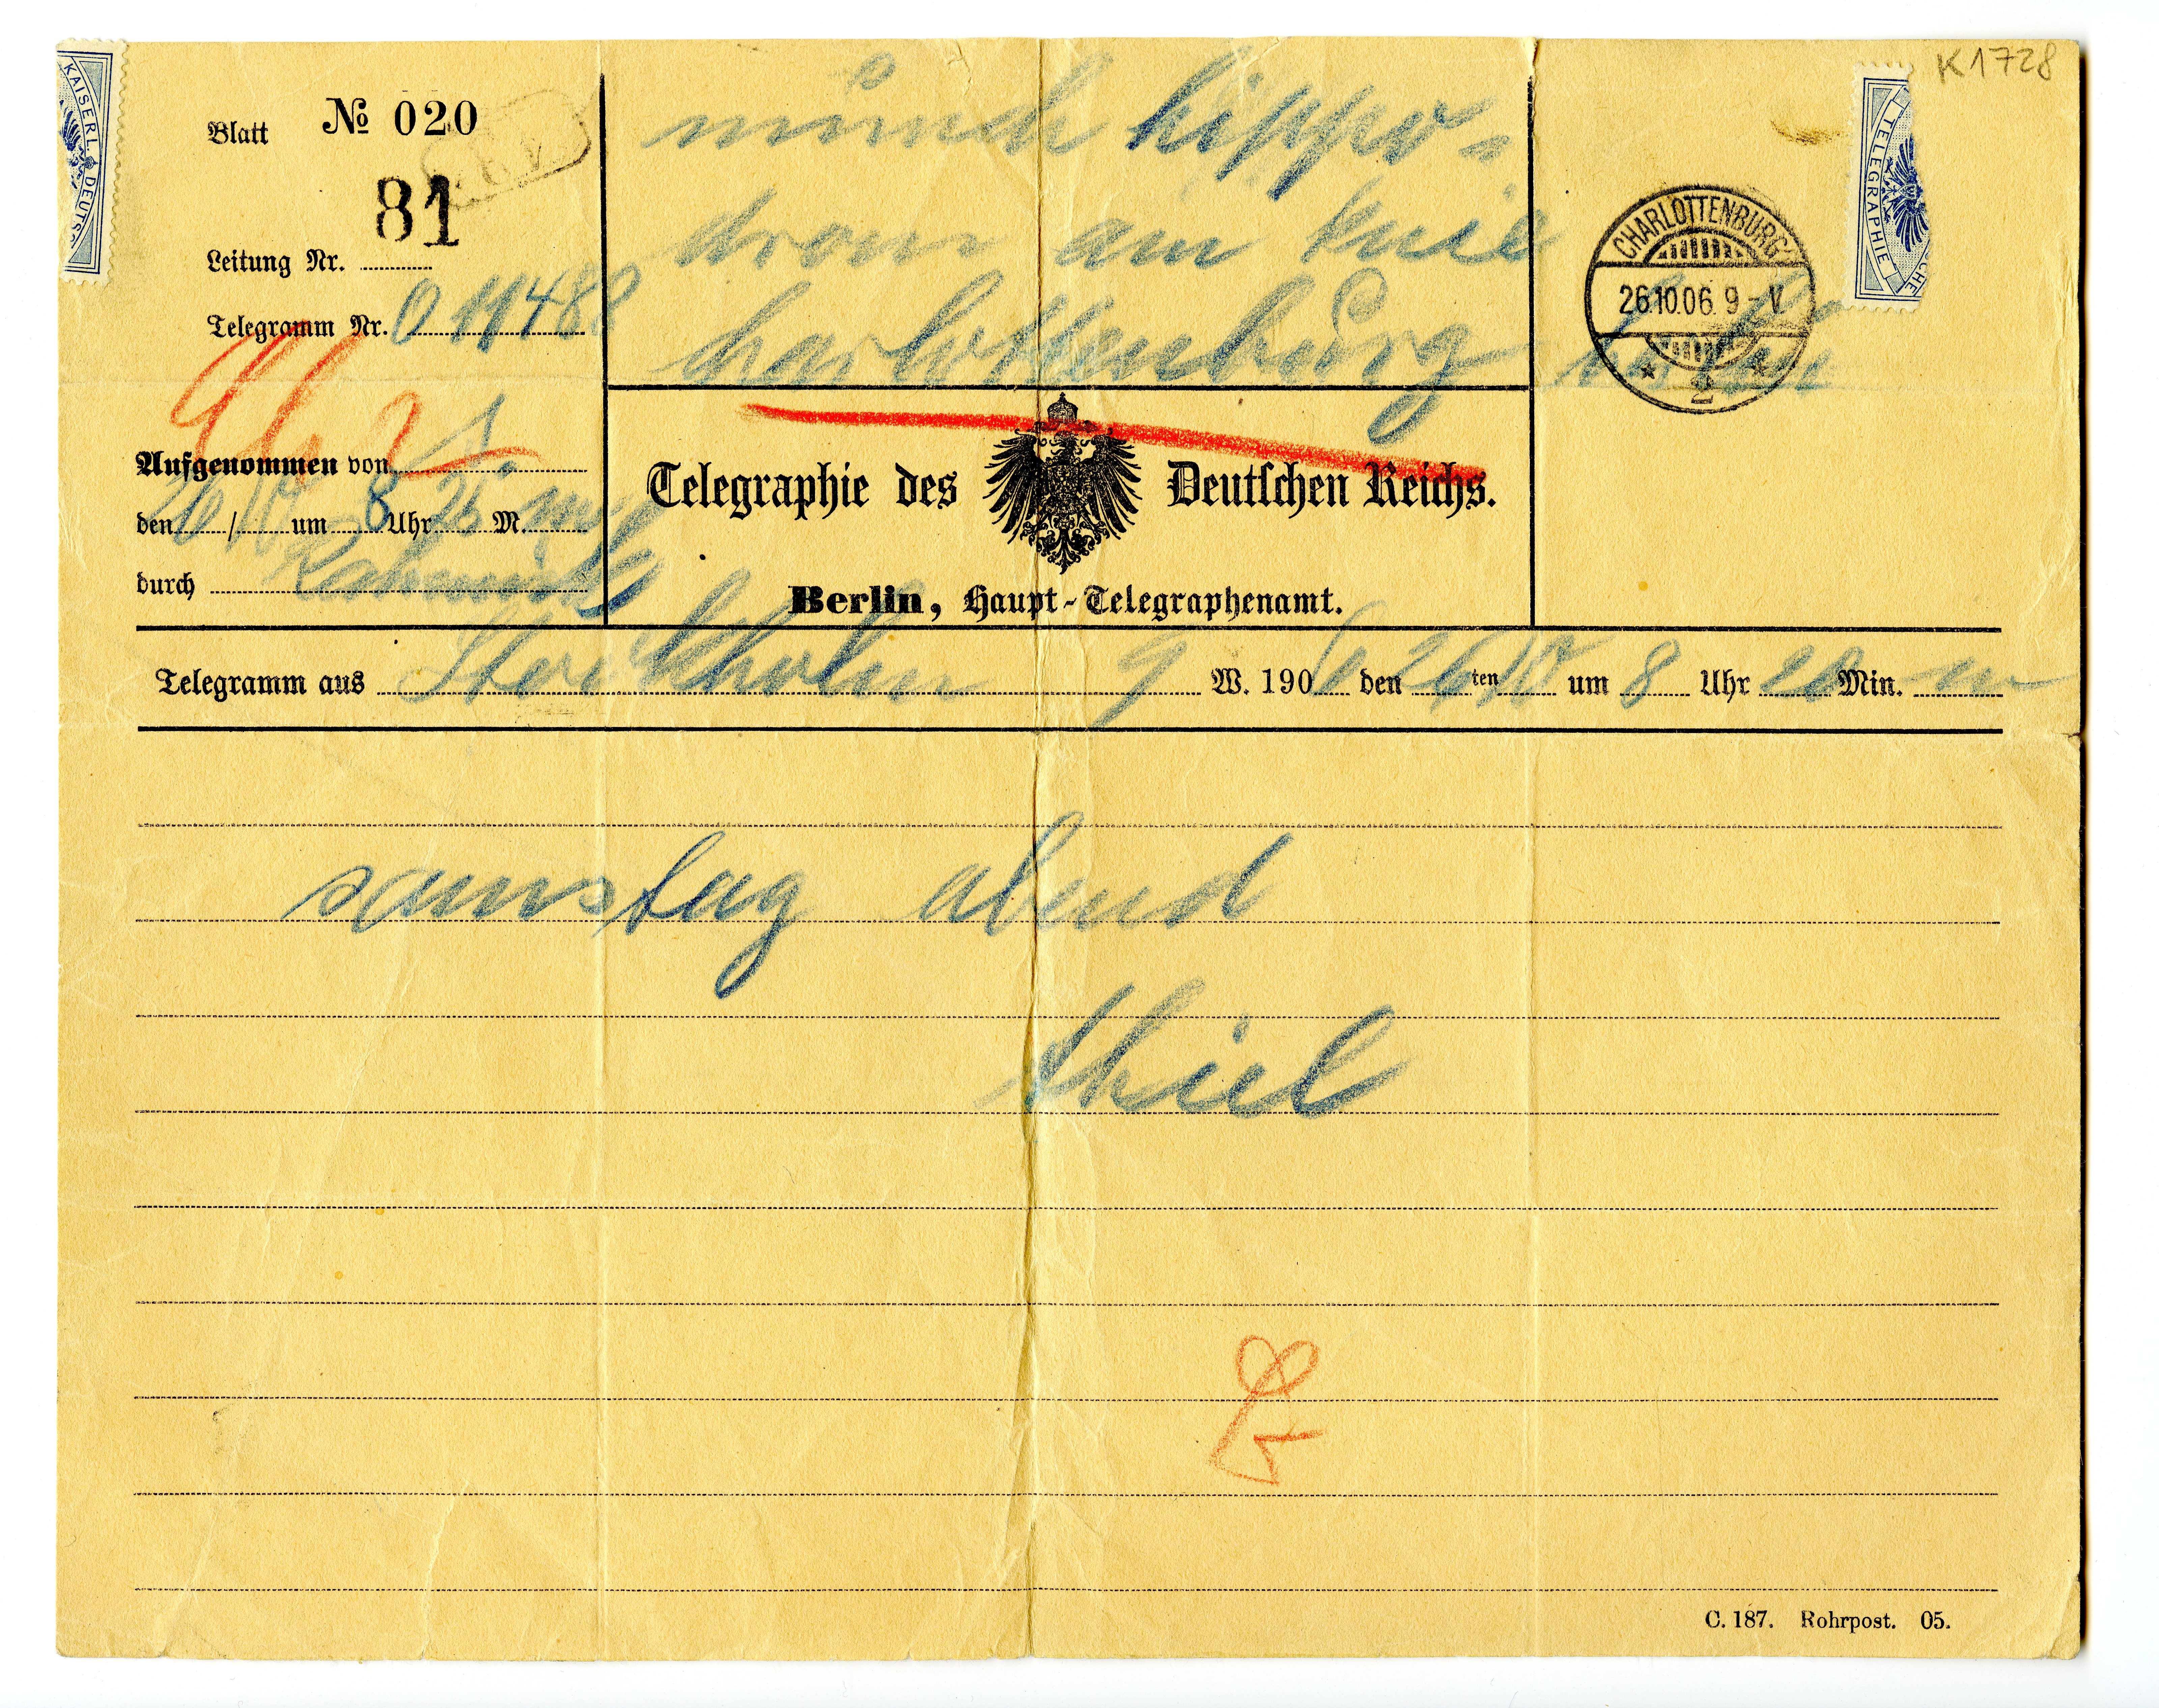 K1728
KAISERL. DEUTS
TELEGRAPHIE
SCHE
Blatt № 020
81
Leitung Nr.
Telegramm Nr. 0 1148
Aufgenommen von
den 26/10 um 8 Uhr 25 M.
durch
münch hippo-
drom am knie
charlottenburg
CHARLOTTENBURG
26.10.06. 9-V.
* 2 *
Telegraphie des Deutschen Reichs.
Berlin, Haupt-Telegraphenamt.
Telegramm aus Stockholm 9 W. 190 6 den 26 ten 10 um 8 Uhr 20 Min. m
samstag abend
thiel
C. 187. Rohrpost. 05.